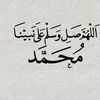 اللهم صل وسلم على نبينا
محمد